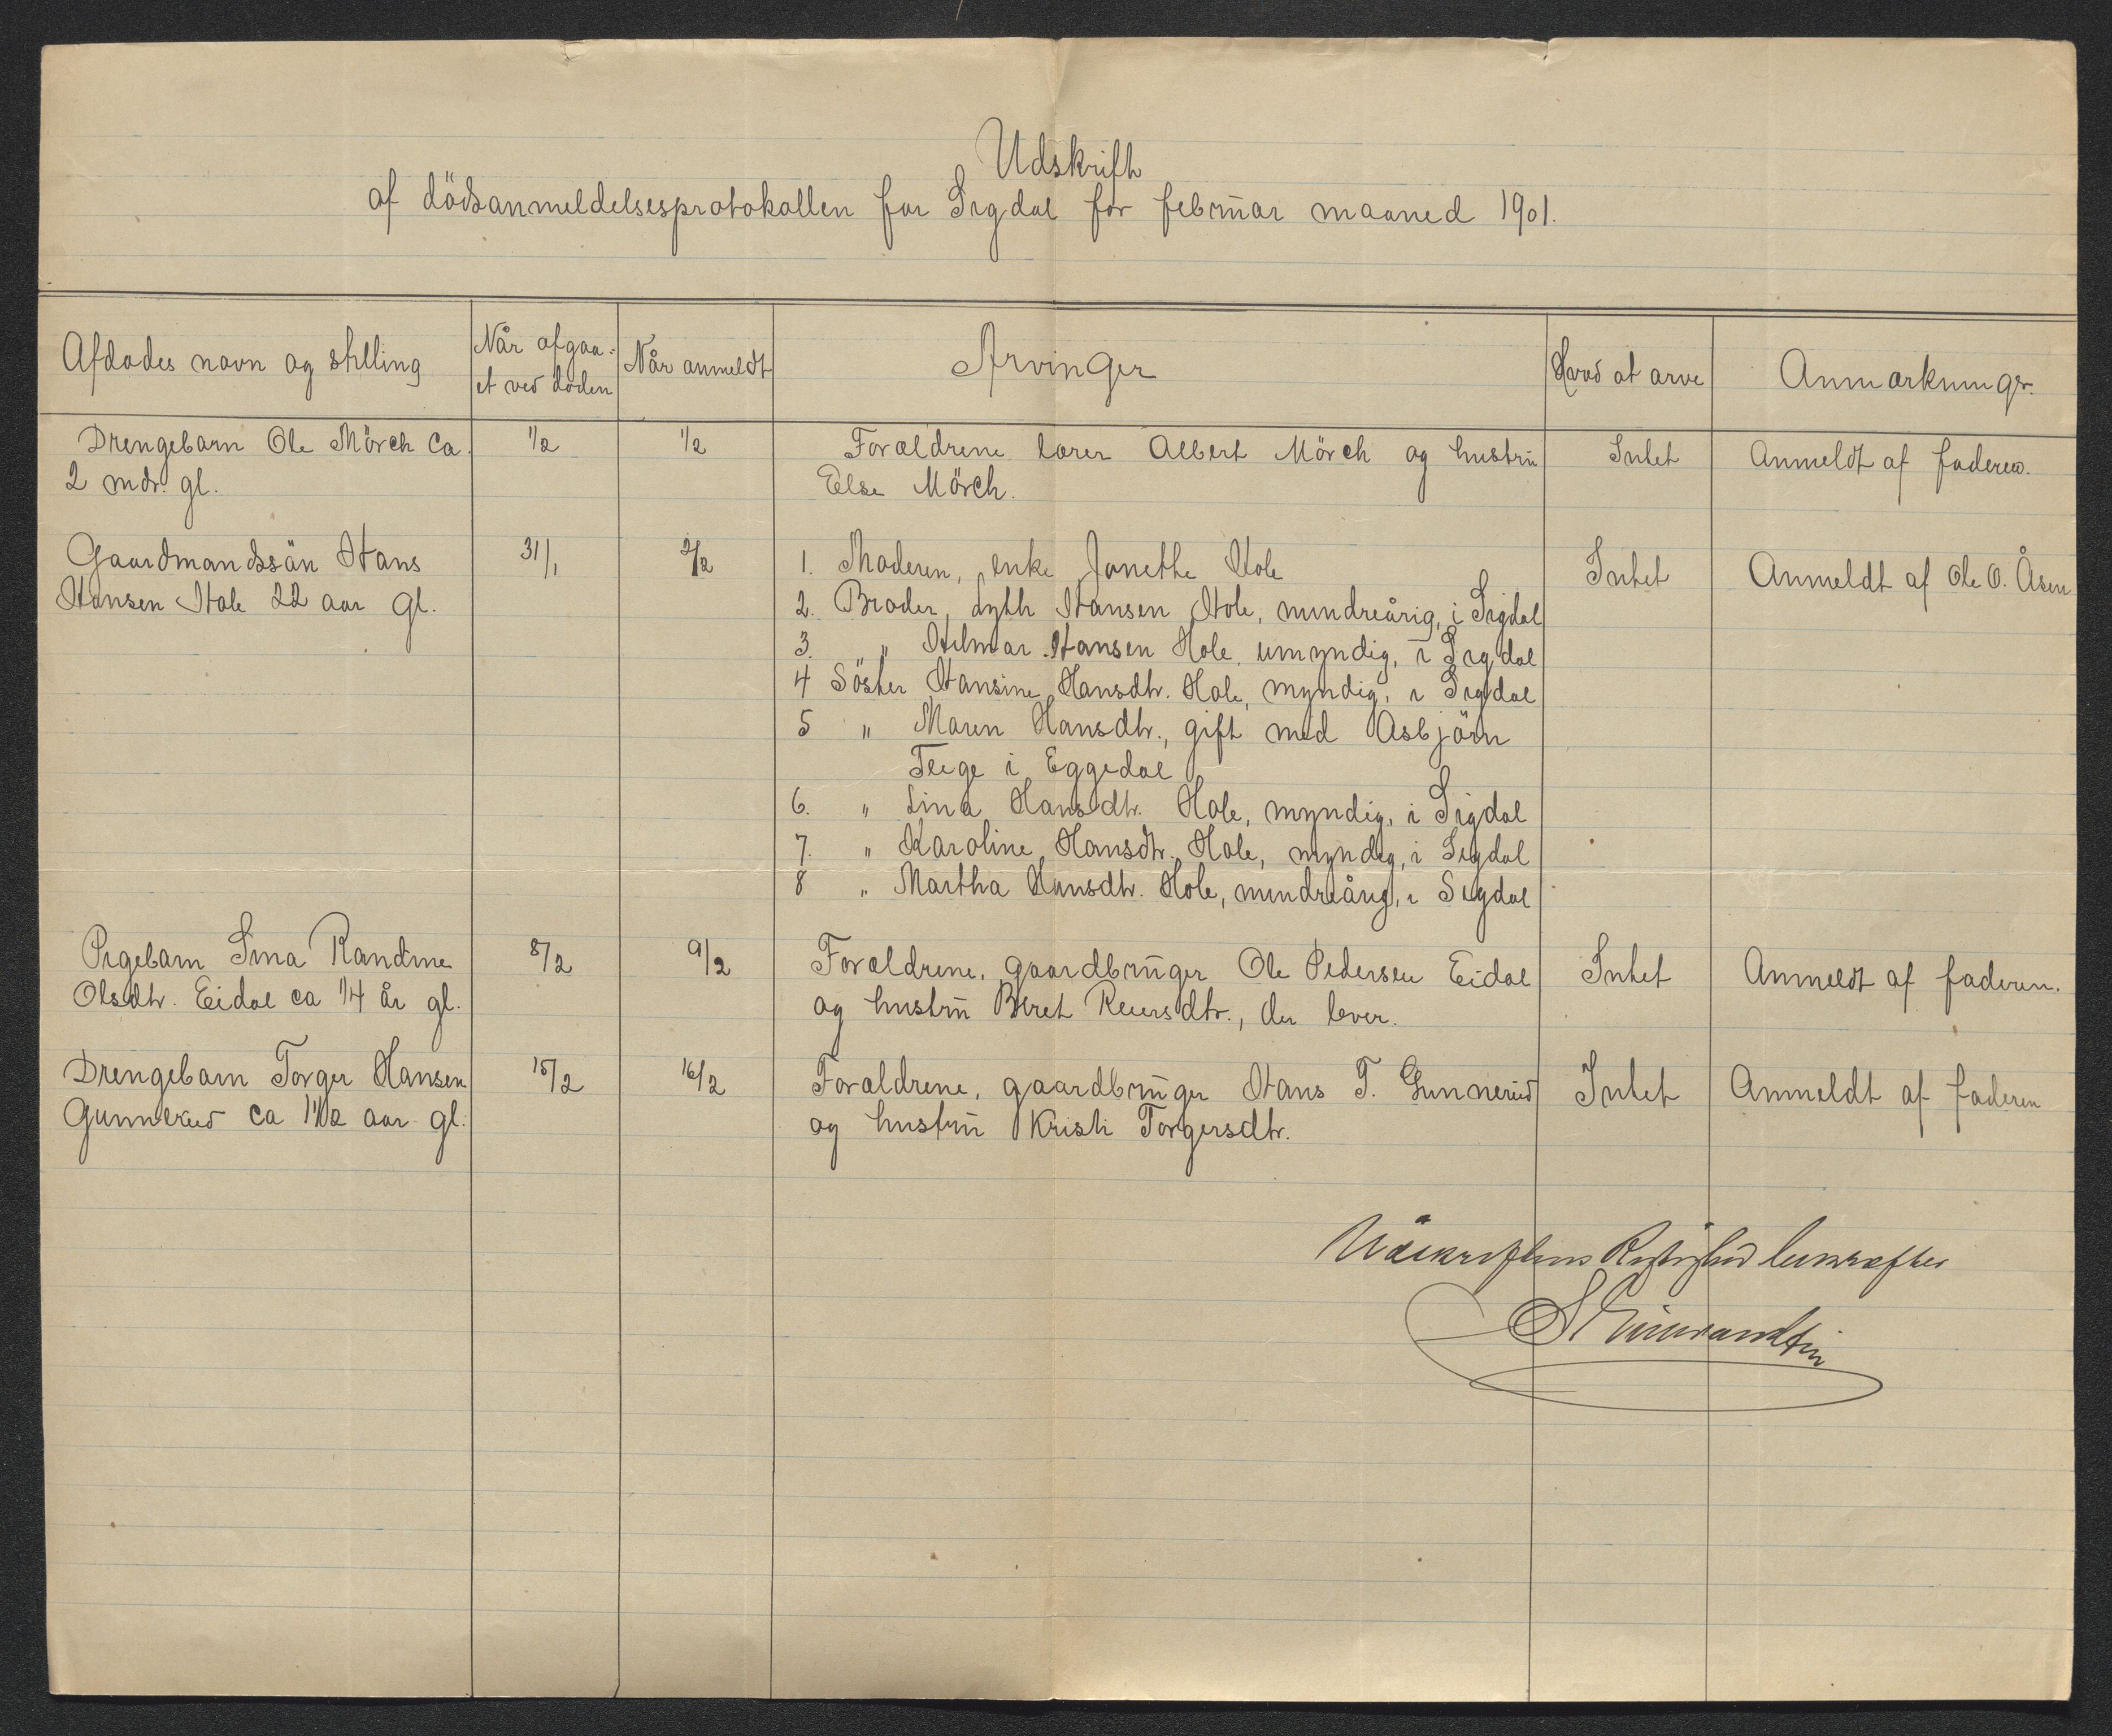 Udskrift
af dödsanmeldelsesprotokollen for Sigdal for februar maaned 1901.
Afdødes navn og stilling
Når afgaa-
et ved døden
Når anmeldt
Arvinger
Hvad at arve
Anmærkninger.
Drengebarn Ole Mörch ca.
2 mdr. gl.
1/2
1/2
Forældrene lærer Albert Mörch og hustru
Else Mörch.
Intet
Anmeldt af faderen.
Gaardmandssön Hans
Hansen Hole 22 aar gl.
31/1
2/2
1. Moderen, enke Janethe Hole
2. Broder, Lyth Hansen Hole, mindreårig, i Sigdal
3. " Hilmar Hansen Hole, umyndig, i Sigdal
4 Söster Hansine Hansdtr. Hole, myndig, i Sigdal
5 " Maren Hansdtr., gift med Asbjörn
Teige i Eggedal
6. " Lina Hansdtr. Hole, myndig, i Sigdal
7. " Karoline Hansdtr. Hole, myndig, i Sigdal
8 " Martha Hansdtr. Hole, mindreårig, i Sigdal
Intet
Anmeldt af Ole O. Åsen
Pigebarn Sina Randine
Olsdtr. Eidal ca 14 år gl.
8/2
9/2
Forældrene, gaardbruger Ole Pedersen Eidal
og hustru Beret Reiersdtr., der lever.
Intet
Anmeldt af faderen.
Drengebarn Torger Hansen
Gunnerud ca 1 1/2 aar gl.
15/2
16/2
Forældrene, gaardbruger Hans T. Gunnerud
og hustru Kristi Torgersdtr.
Intet
Anmeldt af faderen
Udskriftens Rigtighed bekræftes